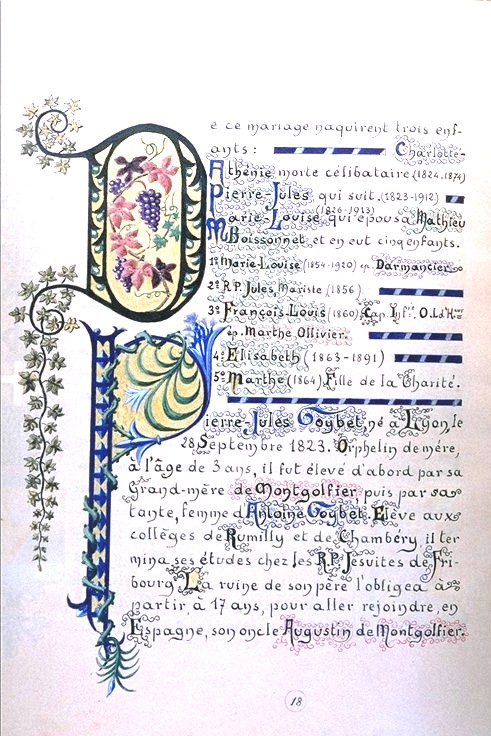 De ce mariage naquirent trois enf-
ants : Charlotte-
Athénie morte célibataire (1824-1874)
Pierre-Jules, qui suit. (1823-1912)
(1826-1913)
Marie-Louise qui épousa Mathieu
Boissonnet et en eut cinq enfants.
1º Marie-Louise (1854-1920) ep. Darmancier
2º R.P. Jules, Mariste (1856)
3º François-Louis (1860), Cap. Infie. O. Ld'Heur
ép. Marthe Ollivier.
4º Elisabeth (1863-1891)
5º Marthe (1864) Fille de la Charité.
Pierre-Jules Goybet, né à Lyon, le
28 Septembre 1823. Orphelin de mère,
à l'âge de 3 ans, il fut élevé d'abord par sa
Grand-mère de Montgolfier, puis par sa
tante, femme d'Antoine Goybet. Elève aux
collèges de Rumilly et de Chambéry, il ter
mina ses études chez les R.P. Jésuites de Fri-
bourg. La ruine de son père l'obligea à
partir, à 17 ans, pour aller rejoindre, en
Espagne, son oncle Augustin de Montgolfier.
18